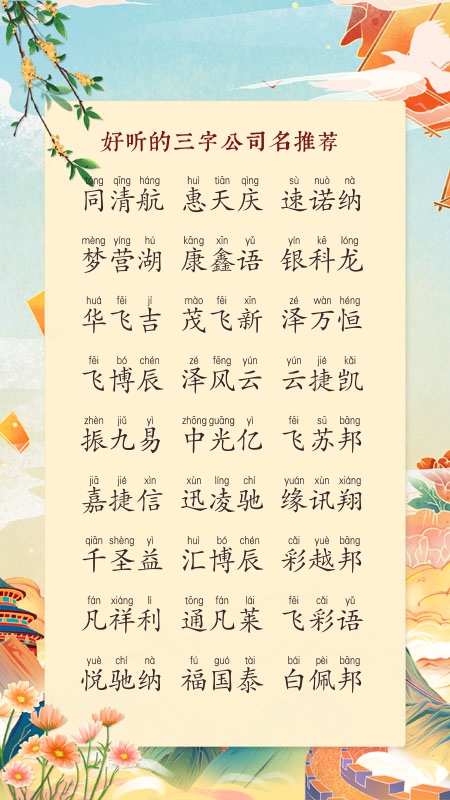 好听的三字公司名推荐
tóng qīng háng huì tiān qìng sù nuò nà
同清航 惠天庆 速诺纳
mèng yíng hú kāng xīn yǔ yín kē lóng
梦营湖 康鑫语 银科龙
huá fēi jí mào fēi xīn zé wàn héng
华飞吉 茂飞新 泽万恒
fēi bó chén zé fēng yún yún jié kǎi
飞博辰 泽风云 云捷凯
zhèn jiǔ yì zhōng guāng yì fēi sū bāng
振九易 中光亿 飞苏邦
jiā jié xìn xùn líng chí yuán xùn xiáng
嘉捷信 迅凌驰 缘讯翔
qiān shèng yì huì bó chén cǎi yuè bāng
千圣益 汇博辰 彩越邦
fán xiáng lì tōng fán lái fēi cǎi yǔ
凡祥利 通凡莱 飞彩语
yuè chí nà fú guó tài bái pèi bāng
悦驰纳 福国泰 白佩邦